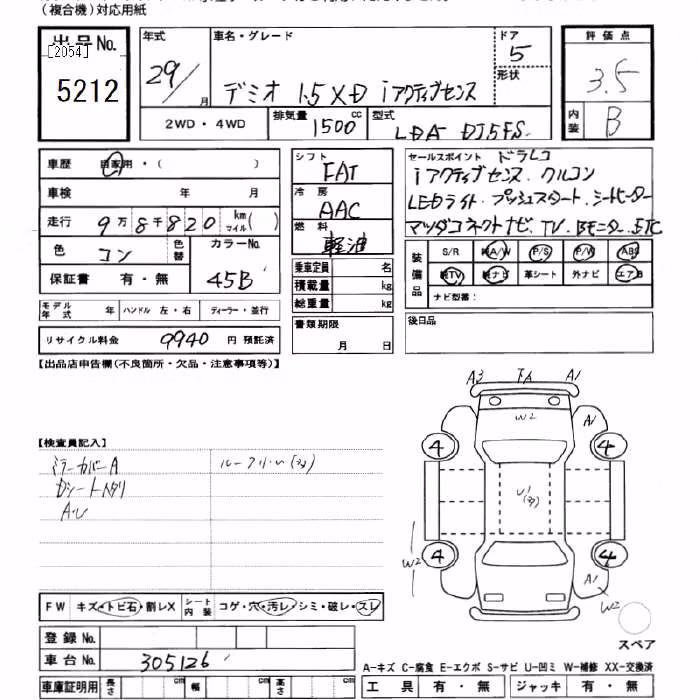 (複合機)対応用紙
出品No.
[2054]
5212
年式
29/
月
車名・グレード
デミオ 1.5XD iアクティブセンス
ドア
5
形状
2WD・4WD
排気量
1500
cc
型式
LDA DJ5FS
評価点
3.5
内装
B
車歴 自家用・( )
車検 年 月
走行 9万8千820 km マイル( )
色 コン 色替
カラーNo.
45B
保証書 有・無
モデル年式 年 ハンドル 左・右 ディーラー・並行
リサイクル料金 9940 円 預託済
シフト
FAT
冷房
AAC
燃料
軽油
乗車定員 名
積載量 kg
総重量 kg
書類期限
月 日
セールスポイント ドラレコ
iアクティブセンス. クルコン
LEDライト. プッシュスタート. シートヒーター
マツダコネクトナビ. TV. Bモニター. ETC
装備品
S/R 純A/W P/S P/W ABS
純TV 純ナビ 革シート 外ナビ エアB
ナビ型番:
後日品
【出品店申告欄(不良箇所・欠品・注意事項等)】
【検査員記入】
ミラーカバーA
Dシートヘタリ
A・U
A3 FA A1
W2
A1
4 4
4 4
W2
A1
W2
スペア
FW キズ・トビ石・割レX
シート内装 コゲ・穴・汚レ・シミ・破レ・スレ
登録No.
車台No. 305126
車庫証明用 長さ cm 幅 cm 高さ cm
A-キズ C-腐食 E-エクボ S-サビ U-凹ミ W-補修 XX-交換済
工具 有・無 ジャッキ 有・無